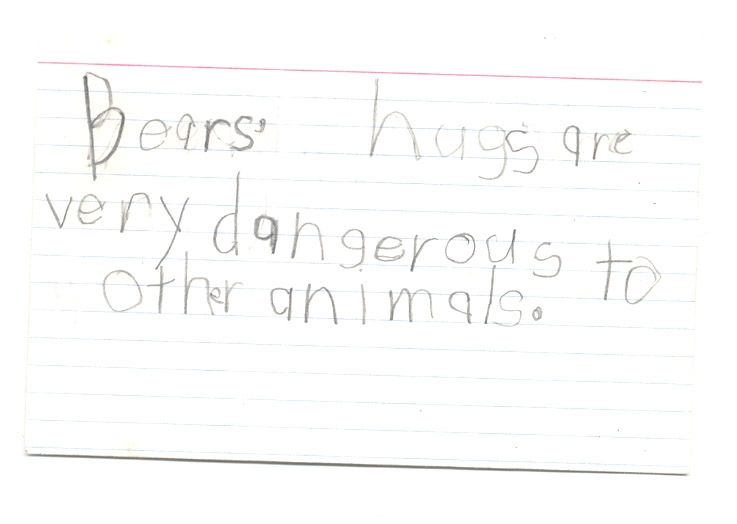 Bears' hugs are
very dangerous to
other animals.